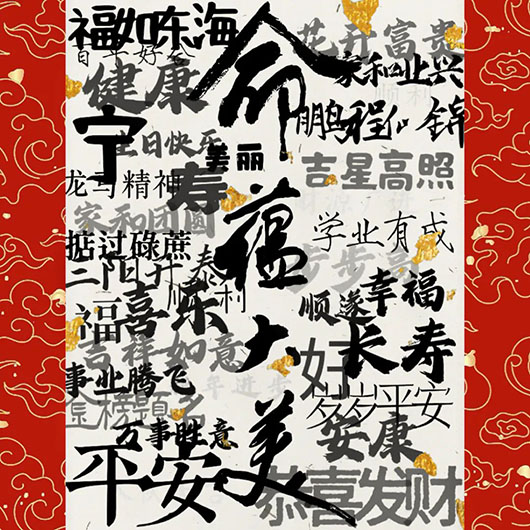 命蕴大美
福如东海
百年好合
健康
宁
生日快乐
美丽
寿
龙马精神
家和团圆
掂过碌蔗
三阳开泰
顺利
福
喜乐
吉祥如意
事业腾飞
年进步
金榜题名
万事胜意
平安
花开富贵
家和业兴
顺利
鹏程似锦
吉星高照
学业有成
步步高
顺遂
幸福
长寿
好
岁岁平安
安康
恭喜发财